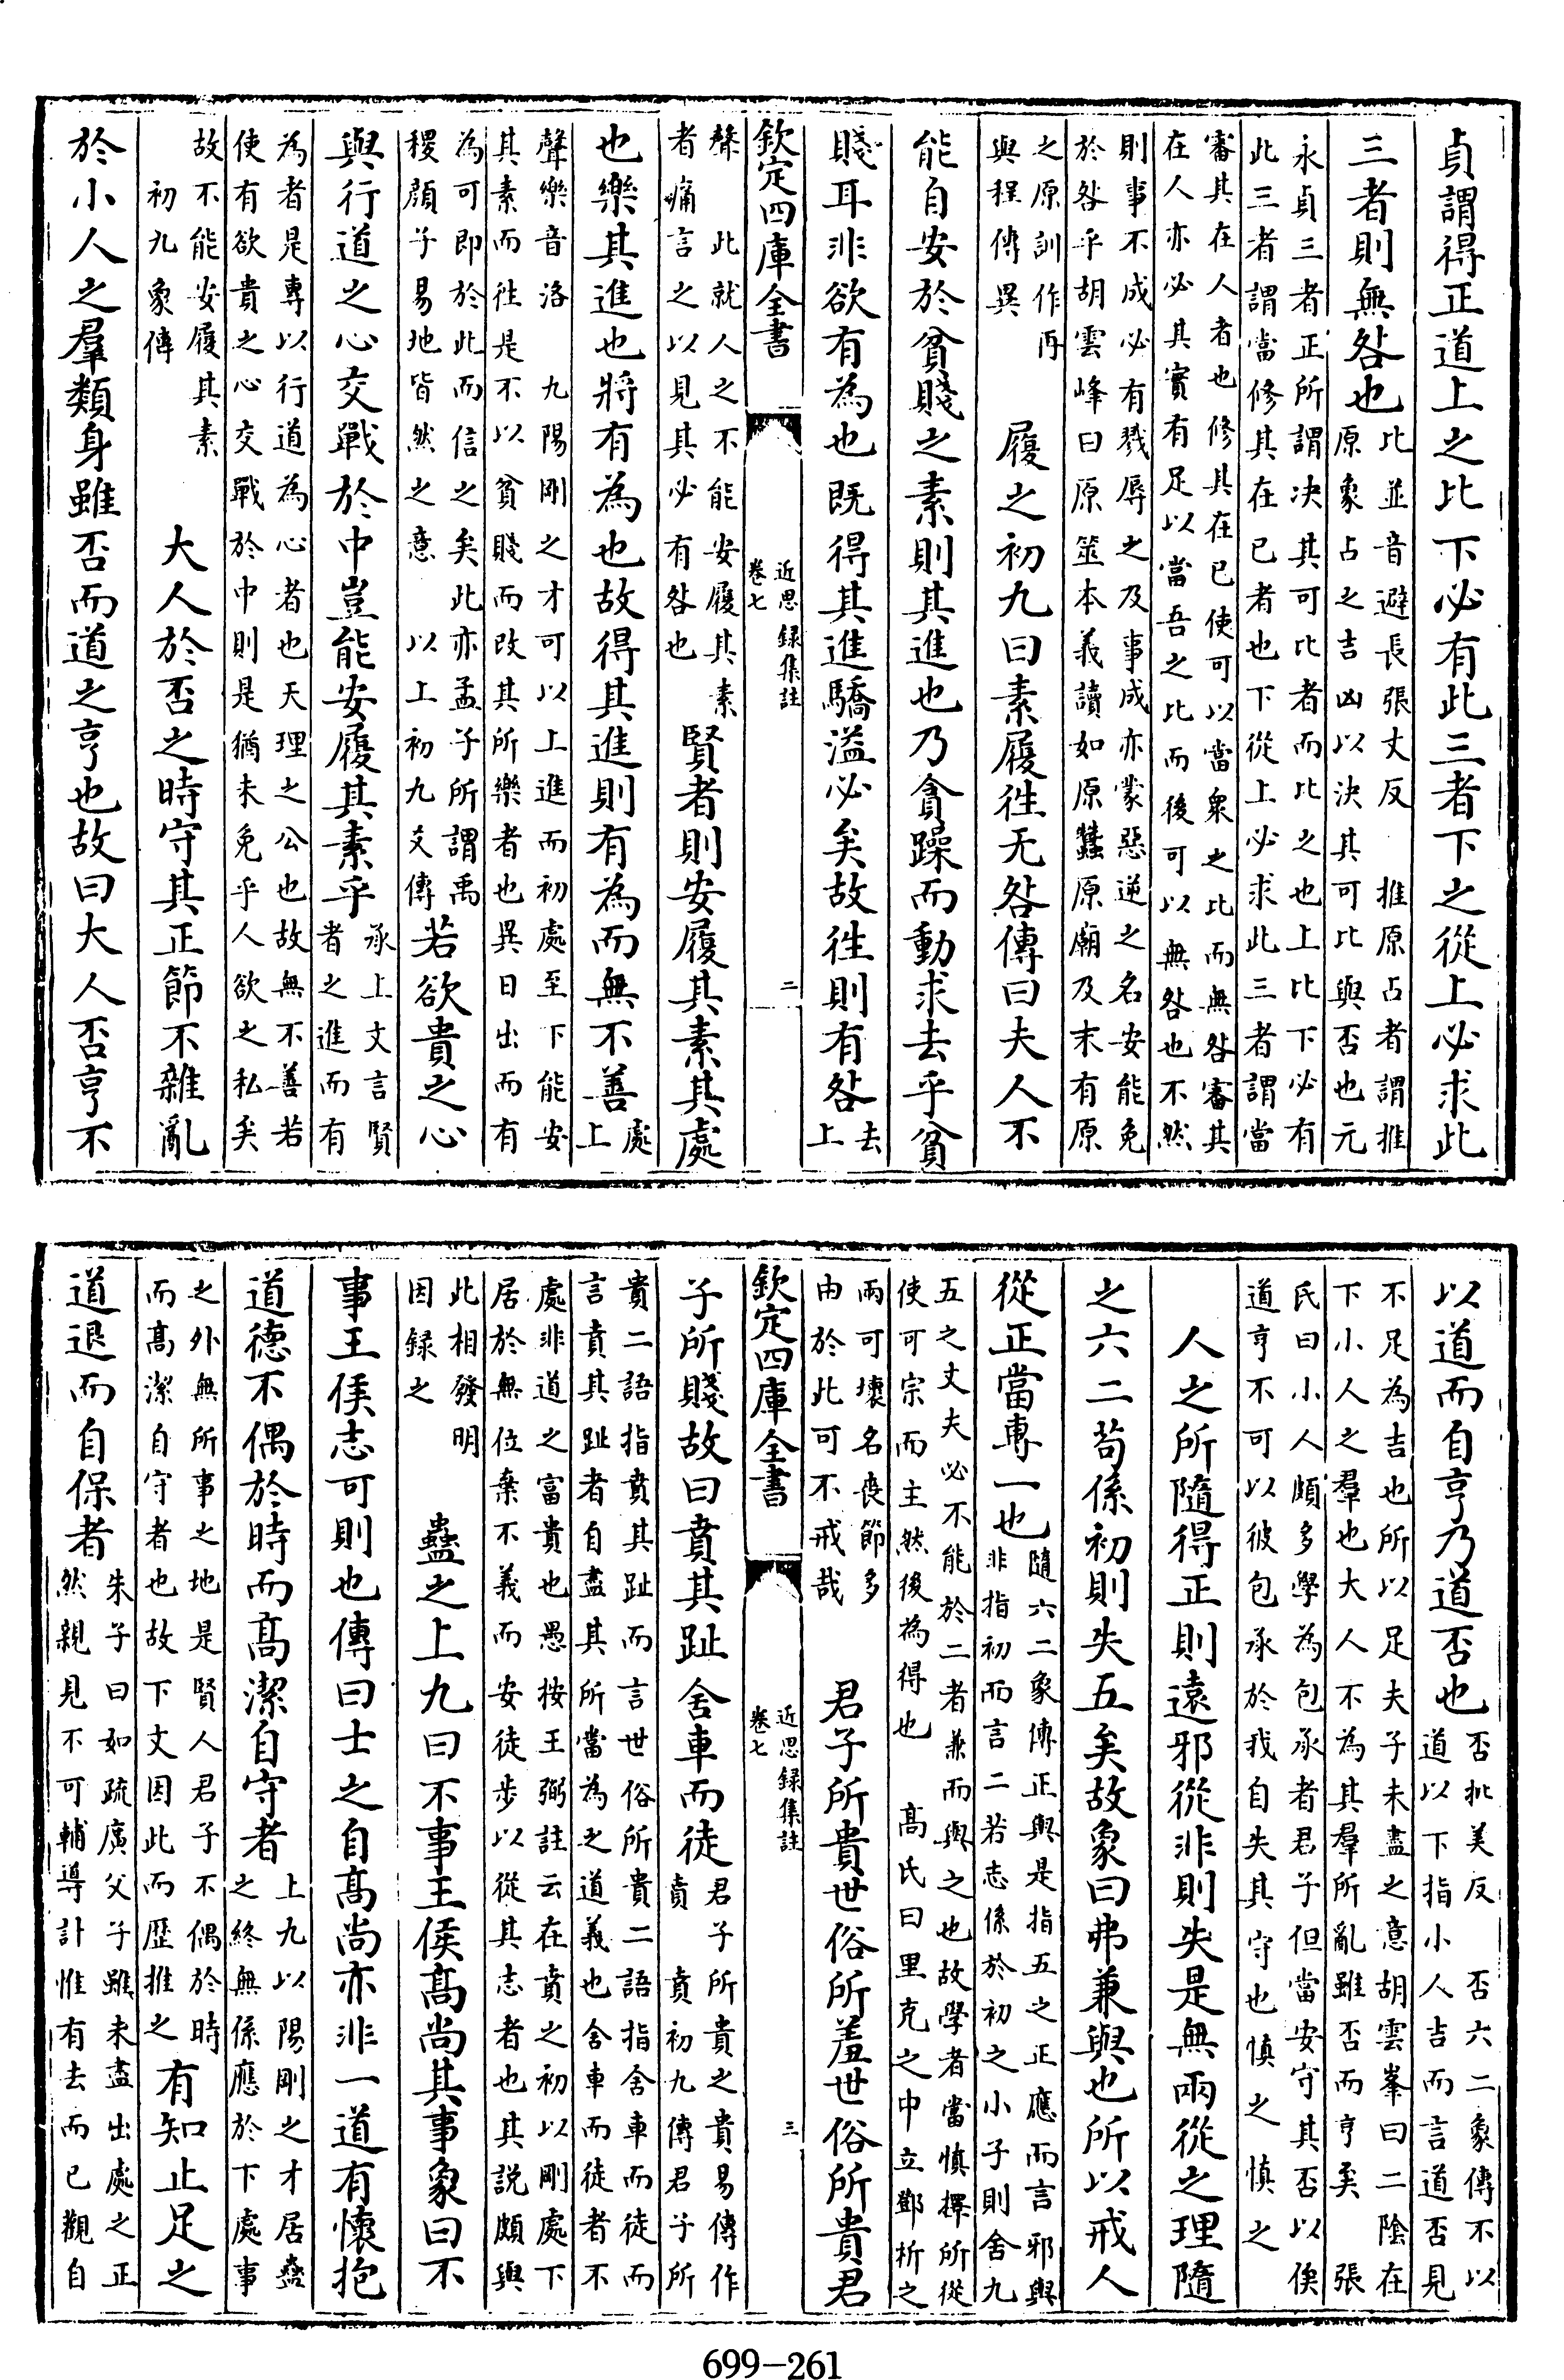 貞謂得正道上之比下必有此三者下之從上必求此
三者則無咎也比並音避長張丈反 推原占者謂推
原象占之吉凶以決其可比與否也元
永貞三者正所謂决其可比者而比之也上比下必有
此三者謂當修其在已者也下從上必求此三者謂當
審其在人者也修其在已使可以當衆之比而無咎審其
在人亦必其實有足以當吾之比而後可以無咎也不然
則事不成必有戮辱之及事成亦蒙惡逆之名安能免
於咎乎胡雲峰曰原筮本義讀如原蠶原廟及末有原
之原訓作再
與程傳異
履之初九曰素履往无咎傳曰夫人不
能自安於貧賤之素則其進也乃貪躁而動求去乎貧
賤耳非欲有為也既得其進驕溢必矣故往則有咎去
上
欽定四庫全書
近思録集註
卷七
二
聲 此就人之不能安履其素
者痛言之以見其必有咎也
賢者則安履其素其處
也樂其進也將有為也故得其進則有為而無不善處
上
聲樂音洛 九陽剛之才可以上進而初處至下能安
其素而往是不以貧賤而改其所樂者也異日出而有
為可即於此而信之矣此亦孟子所謂禹
稷顔子易地皆然之意 以上初九爻傳
若欲貴之心
與行道之心交戰於中豈能安履其素乎承上文言賢
者之進而有
為者是專以行道為心者也天理之公也故無不善若
使有欲貴之心交戰於中則是猶未免乎人欲之私矣
故不能安履其素
初九象傳
大人於否之時守其正節不雜亂
於小人之羣類身雖否而道之亨也故曰大人否亨不
以道而自亨乃道否也否批美反 否六二象傳不以
道以下指小人吉而言道否見
不足為吉也所以足夫子未盡之意胡雲峯曰二陰在
下小人之羣也大人不為其羣所亂雖否而亨矣 張
氏曰小人頗多學為包承者君子但當安守其否以俟
道亨不可以彼包承於我自失其守也慎之慎之
人之所隨得正則遠邪從非則失是無兩從之理隨
之六二苟係初則失五矣故象曰弗兼與也所以戒人
從正當專一也隨六二象傳正與是指五之正應而言邪與
非指初而言二若志係於初之小子則舍九
五之丈夫必不能於二者兼而與之也故學者當慎擇所從
使可宗而主然後為得也 高氏曰里克之中立鄧析之
兩可壞名喪節多
由於此可不戒哉
君子所貴世俗所羞世俗所貴君
欽定四庫全書
近思録集註
卷七
三
子所賤故曰賁其趾舍車而徒君子所貴之貴易傳作
賁 賁初九傳君子所
貴二語指賁其趾而言世俗所貴二語指舍車而徒而
言賁其趾者自盡其所當為之道義也舍車而徒者不
處非道之富貴也愚按王弼註云在賁之初以剛處下
居於無位棄不義而安徒步以從其志者也其説頗與
此相發明
因録之
蠱之上九曰不事王侯髙尚其事象曰不
事王侯志可則也傳曰士之自髙尚亦非一道有懷抱
道德不偶於時而髙潔自守者上九以陽剛之才居蠱
之終無係應於下處事
之外無所事之地是賢人君子不偶於時
而髙潔自守者也故下文因此而歷推之
有知止足之
道退而自保者朱子曰如疏廣父子雖未盡出處之正
然親見不可輔導計惟有去而已觀自
699-261